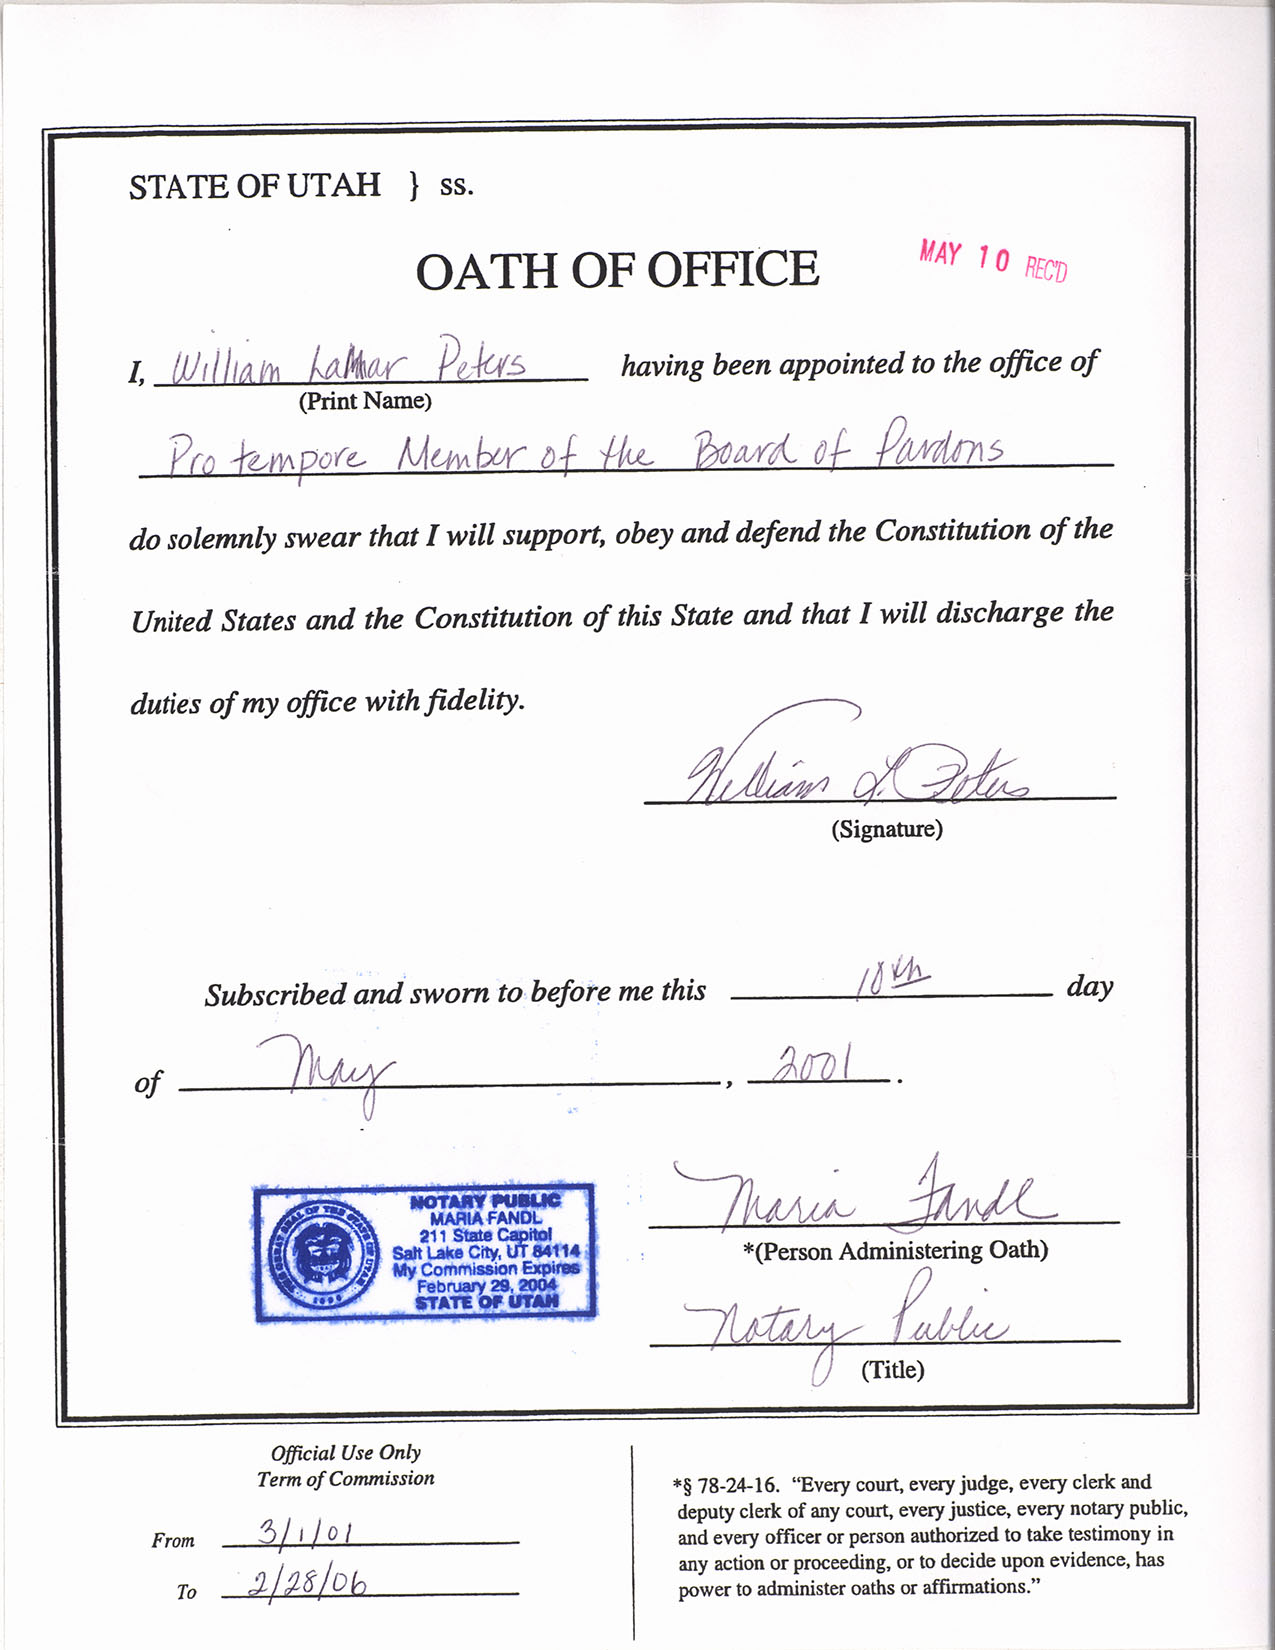 STATE OF UTAH } ss.
OATH OF OFFICE
MAY 10 REC'D
I, William LaMar Peters having been appointed to the office of
(Print Name)
Pro tempore Member of the Board of Pardons
do solemnly swear that I will support, obey and defend the Constitution of the
United States and the Constitution of this State and that I will discharge the
duties of my office with fidelity.
William L. Peters
(Signature)
Subscribed and sworn to before me this 10th day
of May, 2001.
NOTARY PUBLIC
MARIA FANDL
211 State Capitol
Salt Lake City, UT 84114
My Commission Expires
February 29, 2004
STATE OF UTAH
Maria Fandl
*(Person Administering Oath)
Notary Public
(Title)
Official Use Only
Term of Commission
From 3/1/01
To 2/28/06
*§ 78-24-16. “Every court, every judge, every clerk and
deputy clerk of any court, every justice, every notary public,
and every officer or person authorized to take testimony in
any action or proceeding, or to decide upon evidence, has
power to administer oaths or affirmations.”